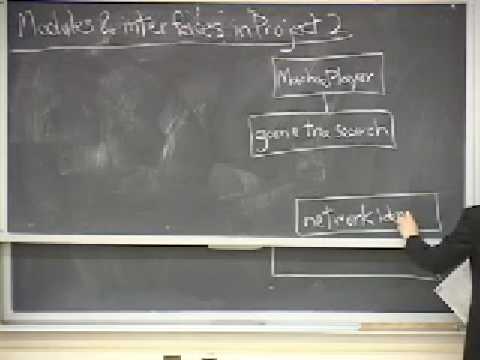 Modules & interfaces in Project 2
MachinePlayer
game tree search
network iden